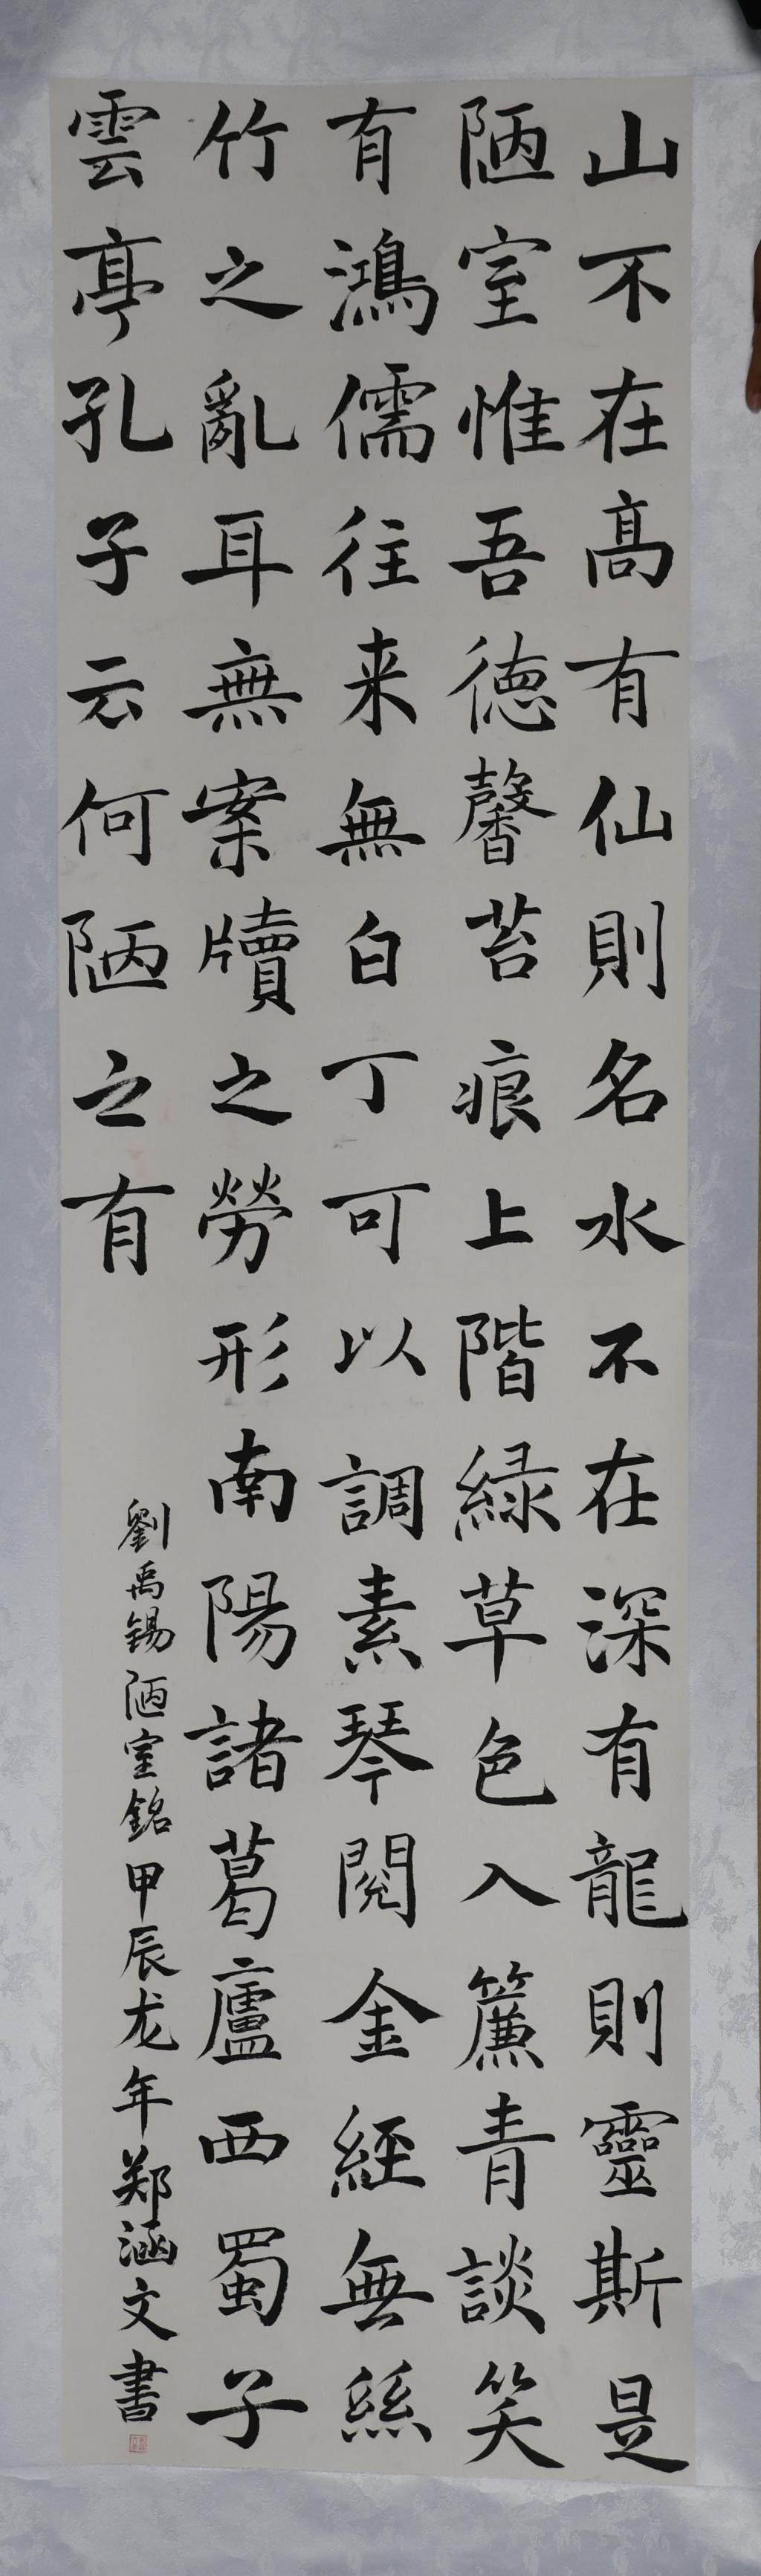 山不在高有仙則名水不在深有龍則靈斯是
陋室惟吾徳馨苔痕上階緑草色入簾青談笑
有鴻儒往来無白丁可以調素琴閲金経無絲
竹之亂耳無案牘之勞形南陽諸葛廬西蜀子
雲亭孔子云何陋之有
劉禹錫陋室銘甲辰龙年郑涵文書